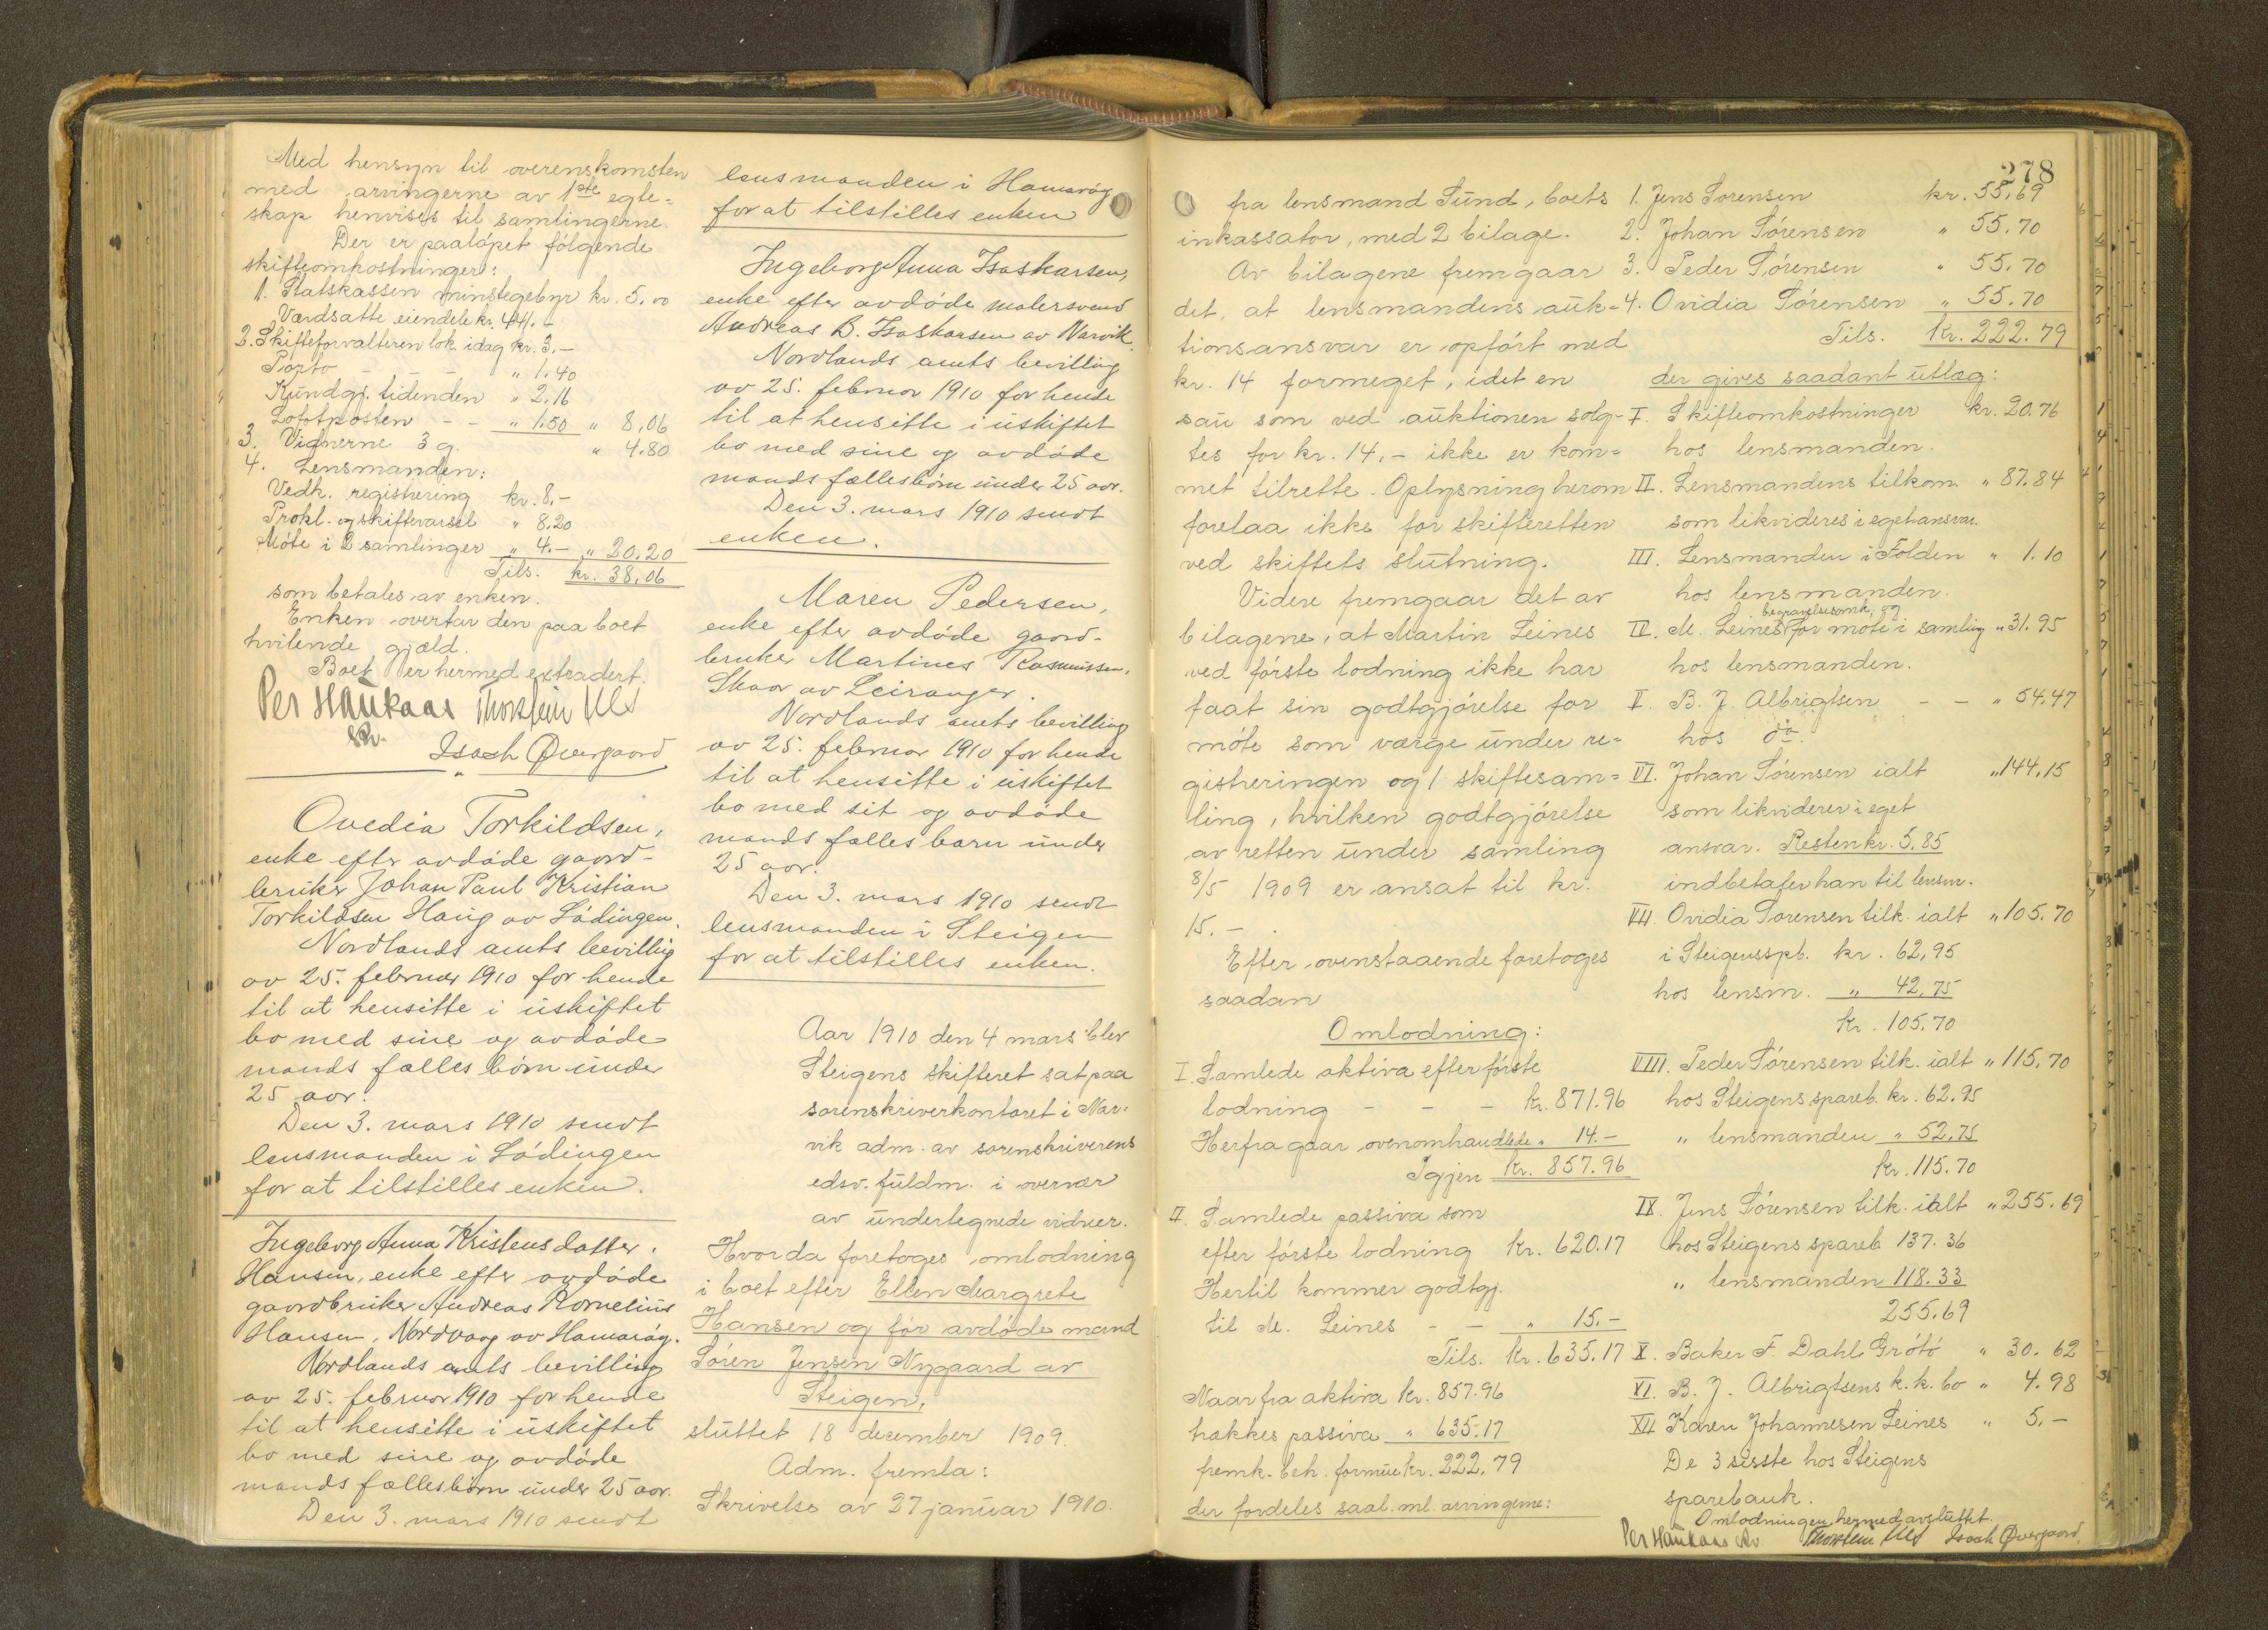 Med hensyn til overenskomsten
med arvingerne av 1ste egte=
skap henvises til samlingerne.
Der er paaløpet følgende
skifteomkostninger:
1. Statskassen minstegebyr kr. 5.00
Værdsatte eiendele kr. 441.-
2. Skifteforvalteren lok. idag kr. 3.-
Porto - - - " 1.40
Kundgj. tidenden " 2,16
Lofotposten - - " 1.50 " 8,06
3. Vidnerne 3 g. " 4.80
4. Lensmanden:
Vedk. registrering kr. 8.-
Prokl. og skiftevarsel " 8.20
Møte i 2 samlinger " 4.- " 20.20
Tils. kr. 38,06
som betales av enken.
Enken overtar den paa boet
hvilende gjæld.
Boet er hermed extradert.
Per Haukaas Thorstein
Isach Øvergaard
Ovedia Torkildsen,
enke efter avdøde gaard-
bruker Johan Paul Kristian
Torkildsen Haug av Lødingen.
Nordlands amts bevilling
av 25. februar 1910 for hende
til at hensitte i uskiftet
bo med sine og avdøde
mands fælles børn under
25 aar.
Den 3. mars 1910 sendt
lensmanden i Lødingen
for at tilstilles enken.
Ingeborg Anna Kristensdatter
Hansen, enke efter avdøde
gaardbruker Andreas Kornelius
Hansen, Nordvaag av Hamarøy.
Nordlands amts bevilling
av 25. februar 1910 for hende
til at hensitte i uskiftet
bo med sine og avdøde
mands fælles børn under 25 aar.
Den 3. mars 1910 sendt
lensmanden i Hamarøy
for at tilstilles enken
Ingeborg Anna Isaskarsen,
enke efter avdøde malersvend
Andreas B. Isaskarsen av Narvik.
Nordlands amts bevilling
av 25. februar 1910 for hende
til at hensitte i uskiftet
bo med sine og avdøde
mands fælles børn under 25 aar.
Den 3. mars 1910 sendt
enken.
Maren Pedersen,
enke efter avdøde gaard-
bruker Martines Rasmussen,
Skaar av Leiranger.
Nordlands amts bevilling
av 25. februar 1910 for hende
til at hensitte i uskiftet
bo med sit og avdøde
mands fælles barn under
25 aar.
Den 3. mars 1910 sendt
lensmanden i Steigen
for at tilstilles enken.
Aar 1910 den 4 mars blev
Steigens skifteret sat paa
sorenskriverkontoret i Nar=
vik adm. av sorenskriverens
edsv. fuldm. i overvær
av undertegnede vidner.
Hvor da foretoges omlodning
i boet efter Ellen Margrete
Hansen og før avdøde mand
Søren Jensen Nygaard av
Steigen,
sluttet 18 december 1909.
Adm. fremla:
Skrivelse av 27 januar 1910.
278
fra lensmand Sund, boets
inkassator, med 2 bilage.
Av bilagene fremgaar
det, at lensmandens auk=
tionsansvar er opført med
kr. 14 formeget, idet en
sau som ved auktionen solg=
tes for kr. 14.- ikke er kom=
met tilrette. Oplysning herom
forelaa ikke for skifteretten
ved skiftets slutning.
Videre fremgaar det av
bilagene, at Martin Leines
ved første lodning ikke har
faat sin godtgjørelse for
møte som værge under re=
gistreringen og 1 skiftesam=
ling, hvilken godtgjørelse
av retten under samling
8/5 1909 er ansat til kr.
15.-.
Efter ovenstaaende foretoges
saadan
Omlodning:
I. Samlede aktiva efter første
lodning - - - kr. 871.96
Herfra gaar ovenomhandlede " 14.-
Igjen kr. 857.96
II. Samlede passiva som
efter første lodning kr. 620.17
Hertil kommer godtgj.
til M. Leines - - " 15.-
Tils. kr. 635.17
Naar fra aktiva kr. 857.96
trækkes passiva " 635.17
fremk. beh. formue kr. 222,79
der fordeles saal. ml. arvingerne:
1. Jens Sørensen kr. 55,69
2. Johan Sørensen " 55.70
3. Peder Sørensen " 55.70
4. Ovidia Sørensen " 55.70
Tils. kr. 222.79
der gives saadant utlæg:
I. Skifteomkostninger kr. 20.76
hos lensmanden.
II. Lensmandens tilkom. " 87.84
som likvideres i eget ansvar.
III. Lensmanden i Folden " 1.10
hos lensmanden.
begravelsesomk. og
IV. M. Leines for møte i samling " 31.95
hos lensmanden.
V. B. J. Albrigtsen - - " 54.47
hos do.
VI. Johan Sørensen ialt " 144.15
som likviderer i eget
ansvar. Resten kr. 5.85
indbetaler han til lensm.
VII. Ovidia Sørensen tilk. ialt " 105.70
i Steigens spb. kr. 62,95
hos lensm. " 42,75
kr. 105.70
VIII. Peder Sørensen tilk. ialt " 115,70
hos Steigens spareb. kr. 62.95
" lensmanden " 52.75
kr. 115.70
IX. Jens Sørensen tilk. ialt " 255.69
hos Steigens spareb. 137.36
" lensmanden 118.33
255.69
X. Baker F. Dahl Grøtø " 30.62
XI. B. J. Albrigtsens k.k. bo " 4.98
XII Karen Johannesen Leines " 5.-
De 3 sisste hos Steigens
sparebank.
Omlodningen hermed avsluttet.
Per Haukaas Thorstein Isach Øvergaard.